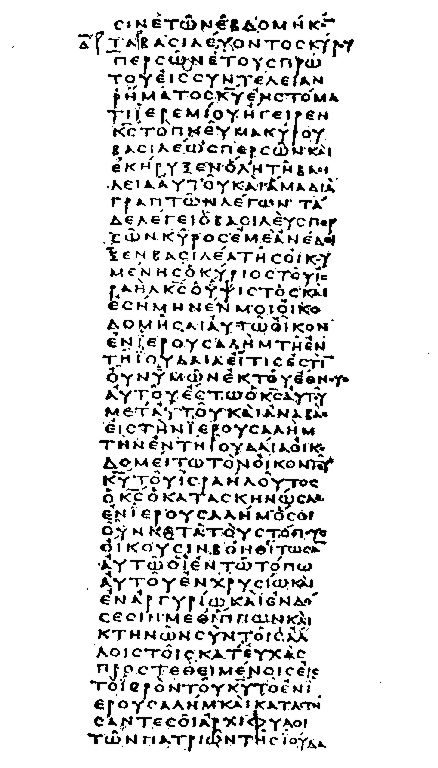 ϹΙΝΕΤΩΝΕΒΔΟΜΗΚ̅
ΤΑΒΑϹΙΛΕΥΟΝΤΟϹΚΥΡΟΥ
ΠΕΡϹΩΝΕΤΟΥϹΠΡΩ
ΤΟΥΕΙϹϹΥΝΤΕΛΕΙΑΝ
ΡΗΜΑΤΟϹΚ̅Υ̅ΕΝϹΤΟΜΑ
ΤΙΙΕΡΕΜΙΟΥΗΓΕΙΡΕΝ
Κ̅Ϲ̅ΤΟΠΝΕΥΜΑΚΥΡΟΥ
ΒΑϹΙΛΕΩϹΠΕΡϹΩΝΚΑΙ
ΕΚΗΡΥΞΕΝΟΛΗΤΗΒΑϹΙ
ΛΕΙΑΑΥΤΟΥΚΑΙΑΜΑΔΙΑ
ΓΡΑΠΤΩΝΛΕΓΩΝΤΑ
ΔΕΛΕΓΕΙΟΒΑϹΙΛΕΥϹΠΕΡ
ϹΩΝΚΥΡΟϹΕΜΕΑΝΕΔΕΙ
ΞΕΝΒΑϹΙΛΕΑΤΗϹΟΙΚΟΥ
ΜΕΝΗϹΟΚΥΡΙΟϹΤΟΥΙϹ
ΡΑΗΛΚ̅Ϲ̅ΟΥΨΙϹΤΟϹΚΑΙ
ΕϹΗΜΗΝΕΝΜΟΙΟΙΚΟ
ΔΟΜΗϹΑΙΑΥΤΩΟΙΚΟΝ
ΕΝΙΕΡΟΥϹΑΛΗΜΤΗΕΝ
ΤΗΙΟΥΔΑΙΑΕΙΤΙϹΕϹΤΙ̅
ΟΥΝΥΜΩΝΕΚΤΟΥΕΘΝΟΥϹ
ΑΥΤΟΥΕϹΤΩΟΚ̅Ϲ̅ΑΥΤΟΥ
ΜΕΤΑΥΤΟΥΚΑΙΑΝΑΒΑϹ
ΕΙϹΤΗΝΙΕΡΟΥϹΑΛΗΜ
ΤΗΝΕΝΤΗΙΟΥΔΑΙΑΟΙΚΟ
ΔΟΜΕΙΤΩΤΟΝΟΙΚΟΝΤΟΥ
Κ̅Υ̅ΤΟΥΙϹΡΑΗΛΟΥΤΟϹ
ΟΚ̅Ϲ̅ΟΚΑΤΑϹΚΗΝΩϹΑϹ
ΕΝΙΕΡΟΥϹΑΛΗΜΟϹΟΙ
ΟΥΝΚΑΤΑΤΟΥϹΤΟΠΟΥϹ
ΟΙΚΟΥϹΙΝΒΟΗΘΕΙΤΩϹΑ̅
ΑΥΤΩΟΙΕΝΤΩΤΟΠΩ
ΑΥΤΟΥΕΝΧΡΥϹΙΩΚΑΙ
ΕΝΑΡΓΥΡΙΩΚΑΙΕΝΔΟ
ϹΕϹΙΝΜΕΘΙΠΠΩΝΚΑΙ
ΚΤΗΝΩΝϹΥΝΤΟΙϹΑΛ
ΛΟΙϹΤΟΙϹΚΑΤΕΥΧΑϹ
ΠΡΟϹΤΕΘΕΙΜΕΝΟΙϹΕΙϹ
ΤΟΙΕΡΟΝΤΟΥΚ̅Υ̅ΤΟΕΝΙ
ΕΡΟΥϹΑΛΗΜΚΑΙΚΑΤΑϹΤΗ
ϹΑΝΤΕϹΟΙΑΡΧΙΦΥΛΟΙ
ΤΩΝΠΑΤΡΙΩΝΤΗϹΙΟΥΔΑ